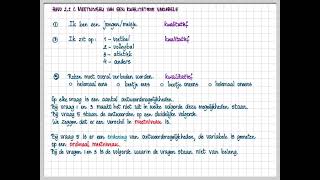 Ik ben een jongen/meisje. kwalitatief
Ik zit op: kwalitatief
1 - voetbal
2 - volleybal
3 - atletiek
4 - anders
Roken moet overal verboden worden. kwalitatief
helemaal eens beetje eens beetje oneens helemaal oneens
Op elke vraag is een aantal antwoordmogelijkheden.
Bij vraag 1 en 3 maakt het niet uit in welke volgorde deze mogelijkheden staan.
Bij vraag 5 staan de antwoorden op een duidelijke volgorde.
We zeggen dat er een verschil in meetniveau is.
Bij vraag 5 is er een ordening van antwoordmogelijkheden, de variabele is gemeten
op een ordinaal meetniveau.
Bij de vragen 1 en 3 is de volgorde waarin de vragen staan niet van belang.